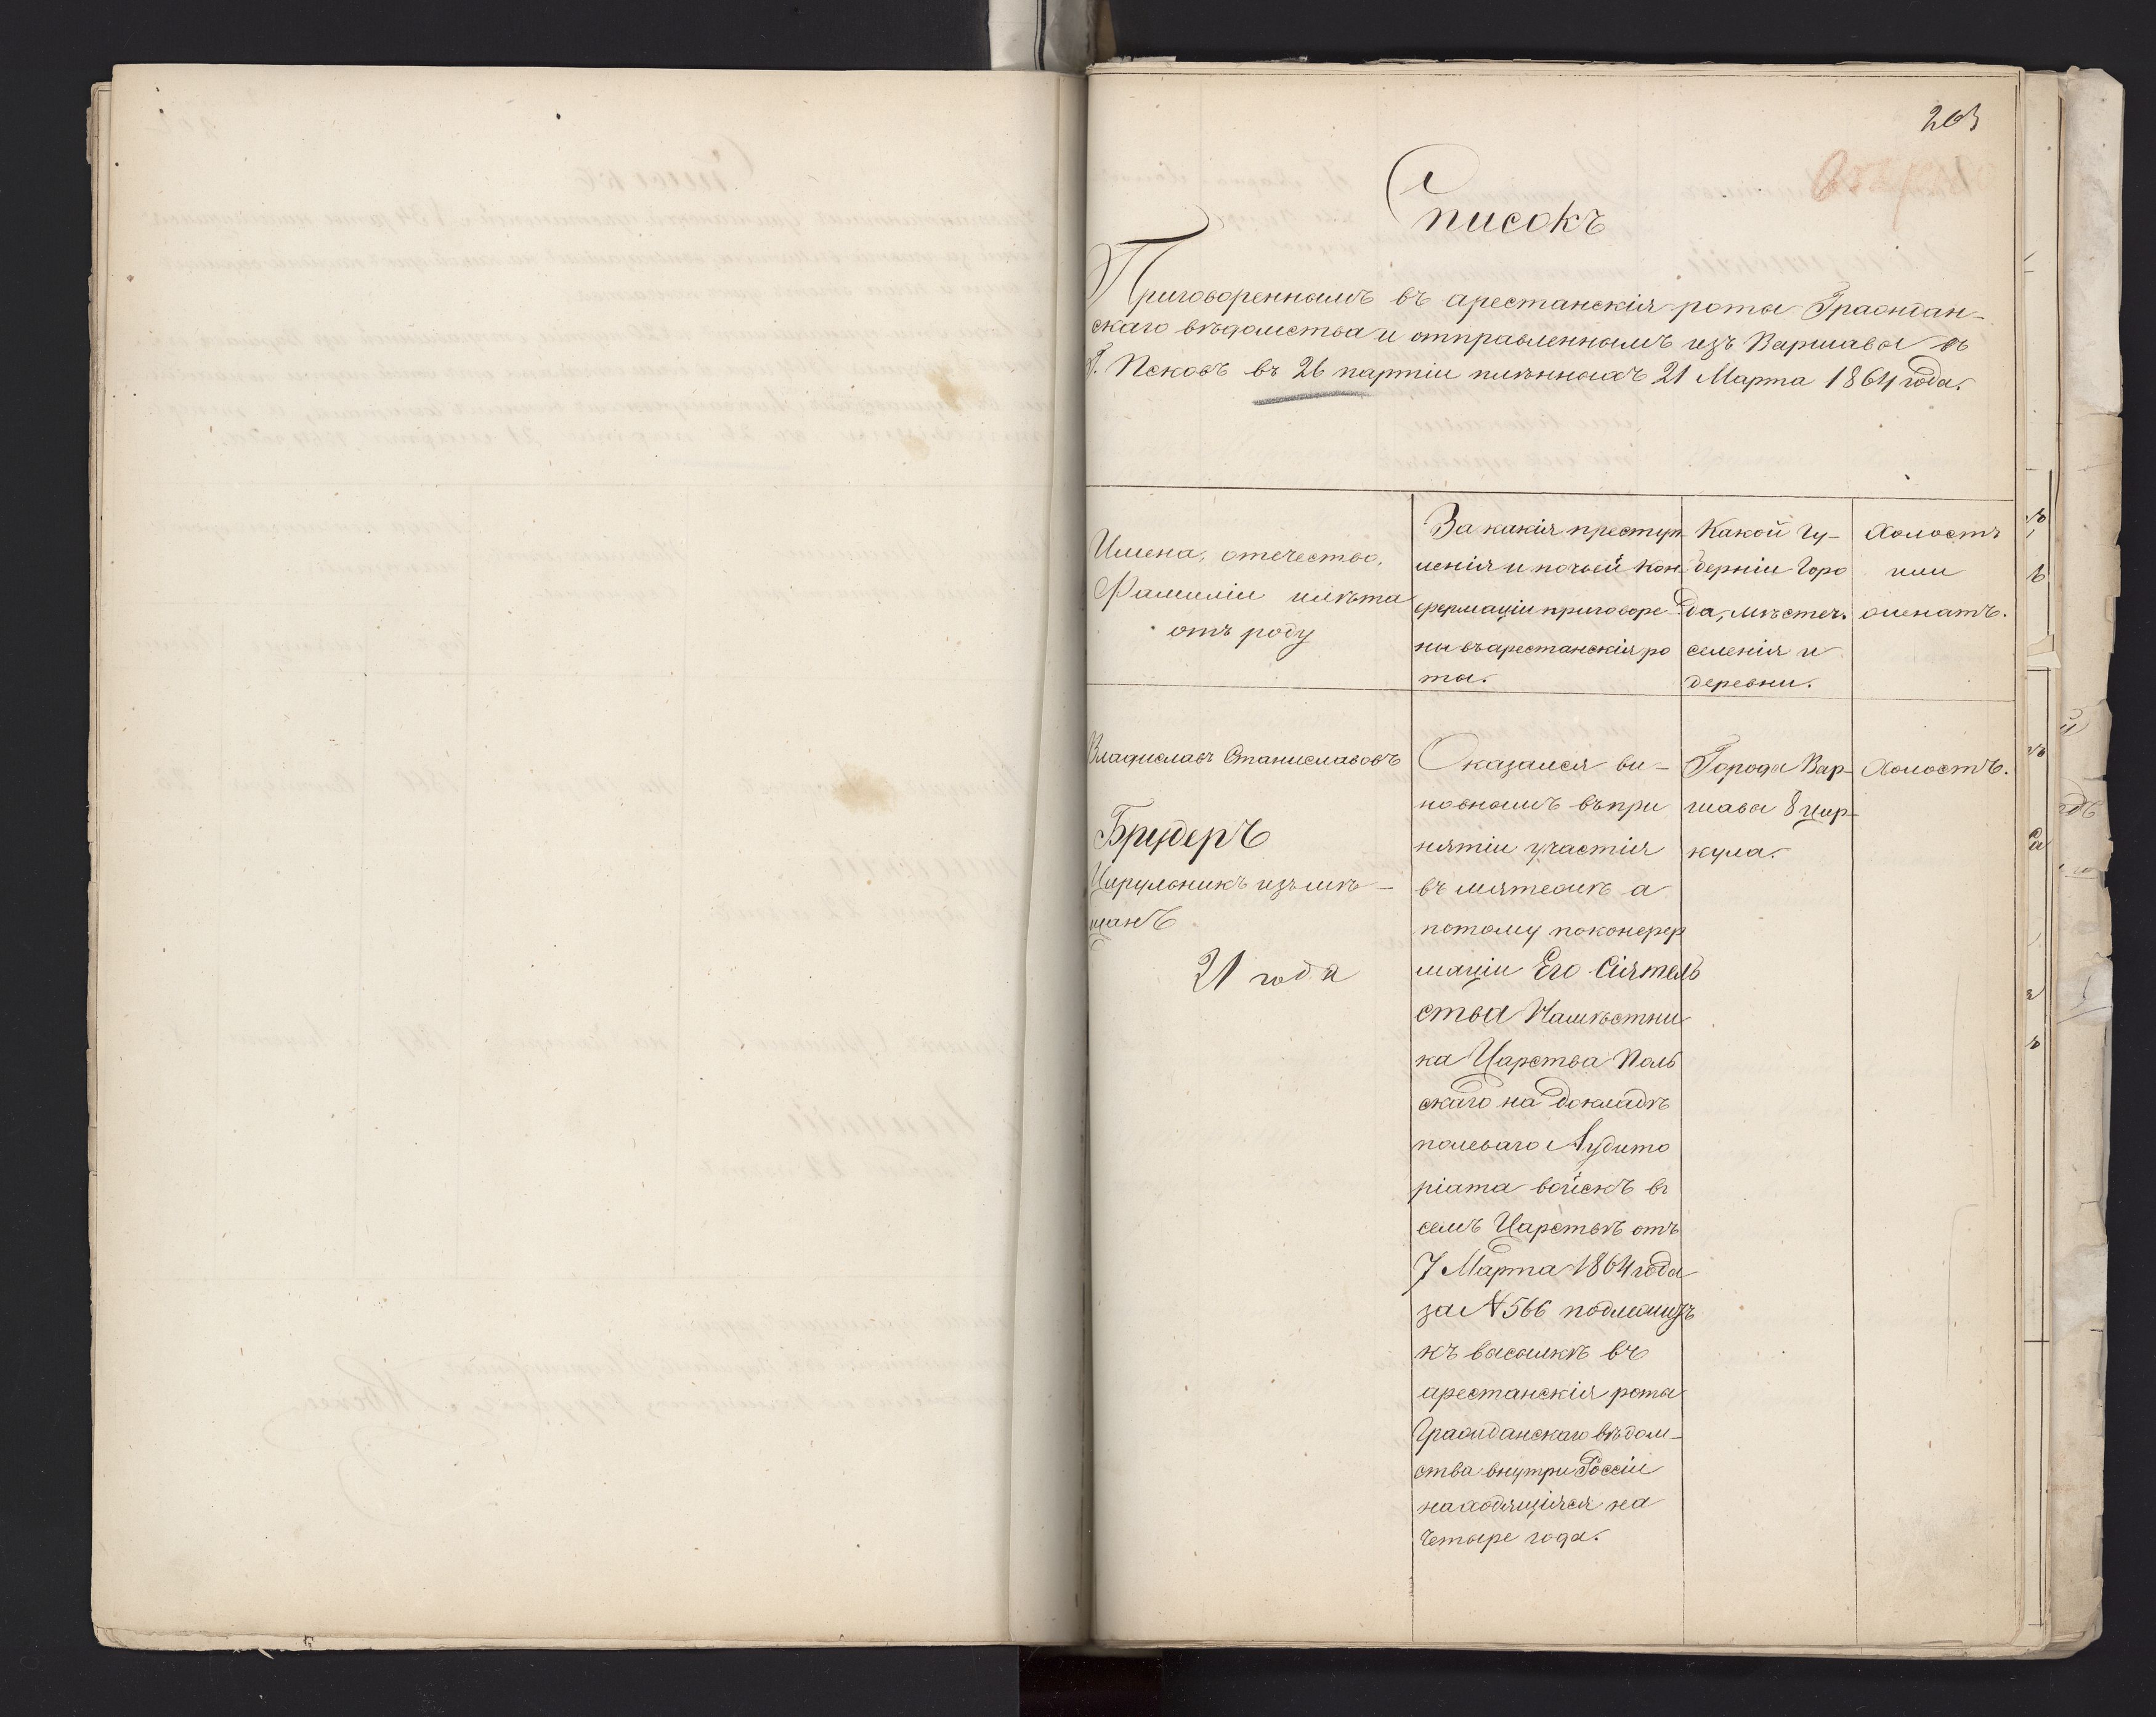 203
Списокъ
Приговореннымъ въ арестанскія роты Граждан-
скаго вѣдомства и отправленнымъ изъ Варшавы въ
Г. Псковъ въ 26 партіи плѣнныхъ 21 Марта 1864 года.
Имена, отечество,
Фамиліи и лѣта
отъ роду
За какія преступ
ленія и по чьей кон
фермаціи приговоре
ны въ арестанскія ро
ты.
Какой Гу-
берніи Горо
да, мѣстеч.
селенія и
деревни.
Холостъ
или
женатъ.
Владиславъ Станиславовъ
Брудеръ
Цирульникъ изъ мѣ-
щанъ
21 года
Оказался ви-
новнымъ въ при
нятіи участія
въ мятежѣ а
потому по конфер
маціи Его Сіятель
ства Намѣстни
ка Царства Поль
скаго на докладѣ
полеваго Аудито
ріата войскъ въ
семъ Царствѣ отъ
7 Марта 1864 года
за № 566 подлежитъ
къ высылкѣ въ
арестанскія роты
Гражданскаго вѣдом-
ства внутри Россіи
находящіяся на
четыре года.
Города Вар-
шавы 8 цир-
кула.
Холостъ.